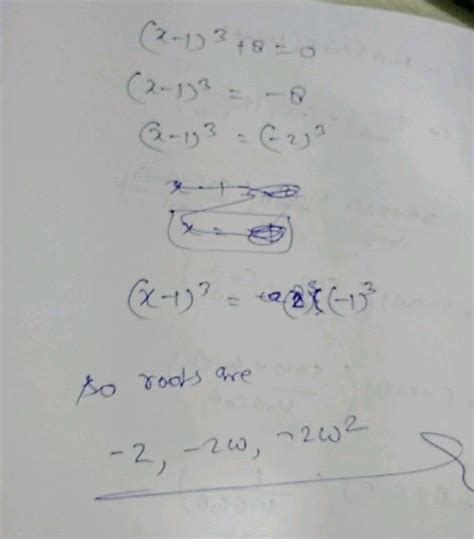 (x-1)³ + 8 = 0
(x-1)³ = -8
(x-1)³ = (-2)³
x - 1 =
x =
(x-1)³ = (2)³ (-1)³
so roots are
-2, -2ω, -2ω²